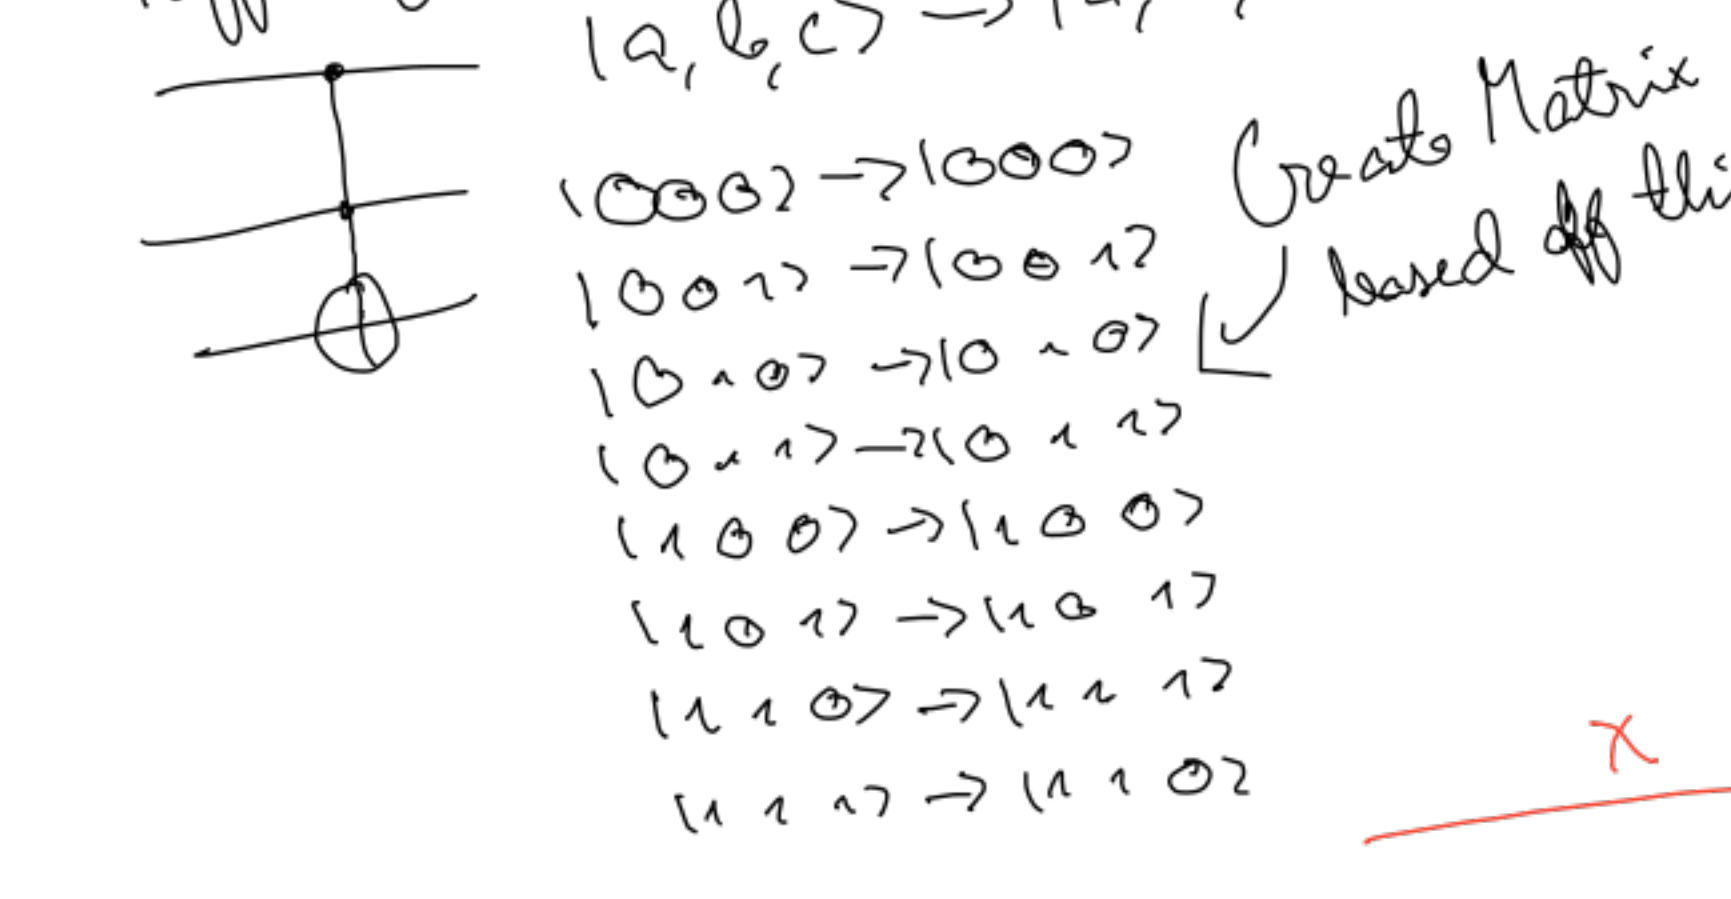 |a, b, c> →
|000> → |000>
|001> → |001>
|010> → |010>
|011> → |011>
|100> → |100>
|101> → |101>
|110> → |111>
|111> → |110>
Create Matrix
based off
x